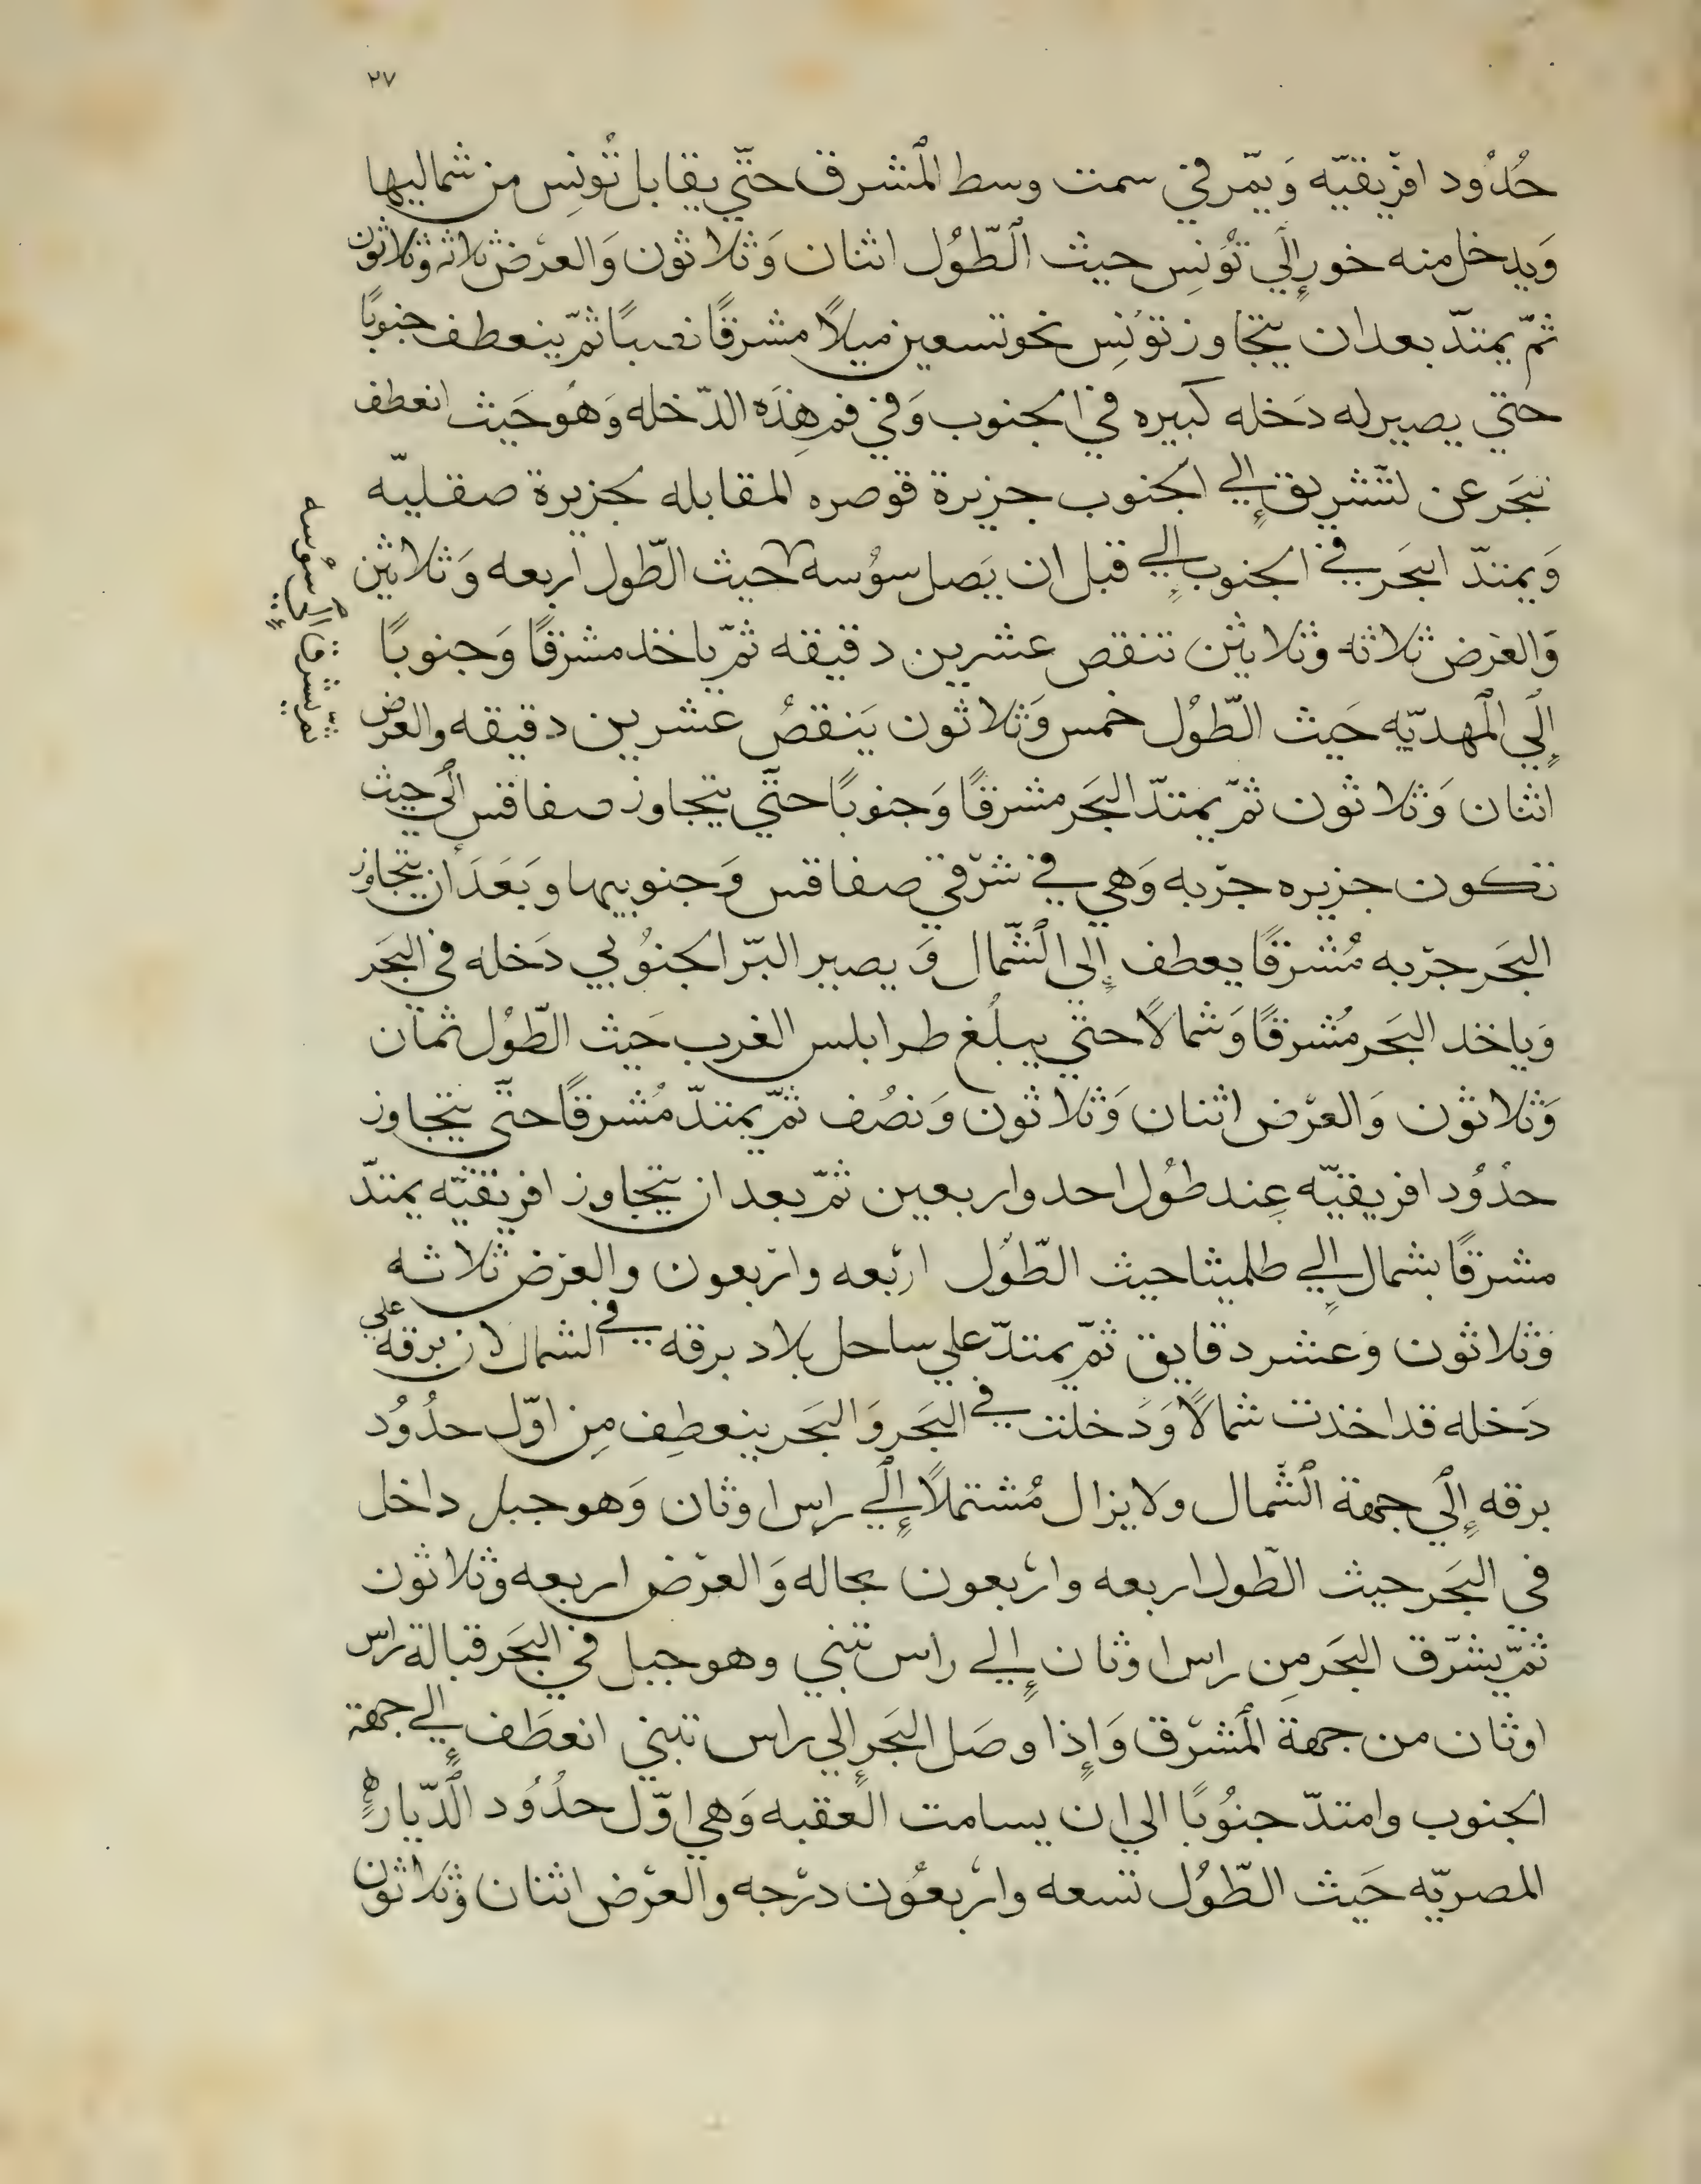 ٢٧
حُدُود افرّيقيّه وَيمّر في سمت وسط المشرق حتّي يقابل تُونِس من شماليها
وَيدخل منه خور إلَي تُونِس حيث الطّوُل اثنان وَثلاثون وَالعرض ثلاثه وثلاثون
ثمّ يمتدّ بعد ان يتجاوز تونِس نحو تسعين ميلاً مشرقًا نصبًا ثمّ ينعطف جنوبًا
حتي يصير له دَخله كبيره في الجنوب وَفي فم هِذَه الدّخله وَهُو حَيث انعطف
بحَر عن لتّشريق إلي الجنوب جزيرة قوصره المقابله لجزيرة صقليّه
وَيمتدّ البحَر في الجنوب إلي قبل ان يَصل سوُسه حيث الطّول اربعه وَثلاثين
وَالعَرض ثلاثه وثلاثين تنقص عشرين دقيقه ثمّ ياخذ مشرقًا وَجنوبًا
إلَي المهديّه حَيث الطّوُل خمس وَثلاثون يَنقصُ عشرين دقيقه والعرض
اثنان وَثلاثون ثمّ يمتدّ البحَر مشرقًا وَجنوبًا حتّي يتجاوز صفاقس الَي حيث
تكون جزيره جرّبه وَهي في شرّقي صفاقس وَجنوبيها وبَعَدَ ان يتجاوز
البحَر جرّبه مُشرقًا يعطف إلي الشّمال وَ يصير البرّ الجنوُبي دَخله في البحَر
وَياخذ البحَر مُشرقًا وَشمالاً حتي يبلُغ طرابلس الغرب حَيث الطّوُل ثمان
وَثلاثون وَالعرّض اثنان وَثلاثون وَنصُف ثمّ يمتدّ مُشرقًا حتّي يتجاوز
حدُوُد افريقيّه عِند طوُل احد واربعين ثمّ بعد ان يتجاوز افريقيّه يمتدّ
مشرقًا بشمال إلي طلميثا حيث الطّوَل اربعه واربعون والعرض ثلاثه
وَثلاثون وَعشر دقايق ثمّ يمتدّ علي ساحل بلاد برقه في الشمال لان برقه علي
دَخله قد اخذت شمالاً وَدَخلت في البحَر وَالبحَر ينعطِف مِن اوّل حدُوُد
برقه إلَي جهة الشّمال ولا يزال مُشتملاً إلَي راس اوثان وَهو جبل داخل
في البحَر حيث الطّول اربعه واربعون بحاله وَالعرّض اربعه وثلاثون
ثمّ يشرّق البحَر مِن راس اوثان إلي راس تبني وهو جبل في البحَر قبالة راس
اوثان من جهة المشرّق وَإذا وصَل البحَر إلي راس تبني انعطَف إلي جهة
الجنوب وامتدّ جنوُبًا الي ان يسامت العقبه وَهي اوّل حدُوُد الدّيار
المصريّه حَيث الطّوُل تسعه واربعوُن درّجه والعرّض اثنان وَثلاثون
ثمّ يشرق الَي سوُسه